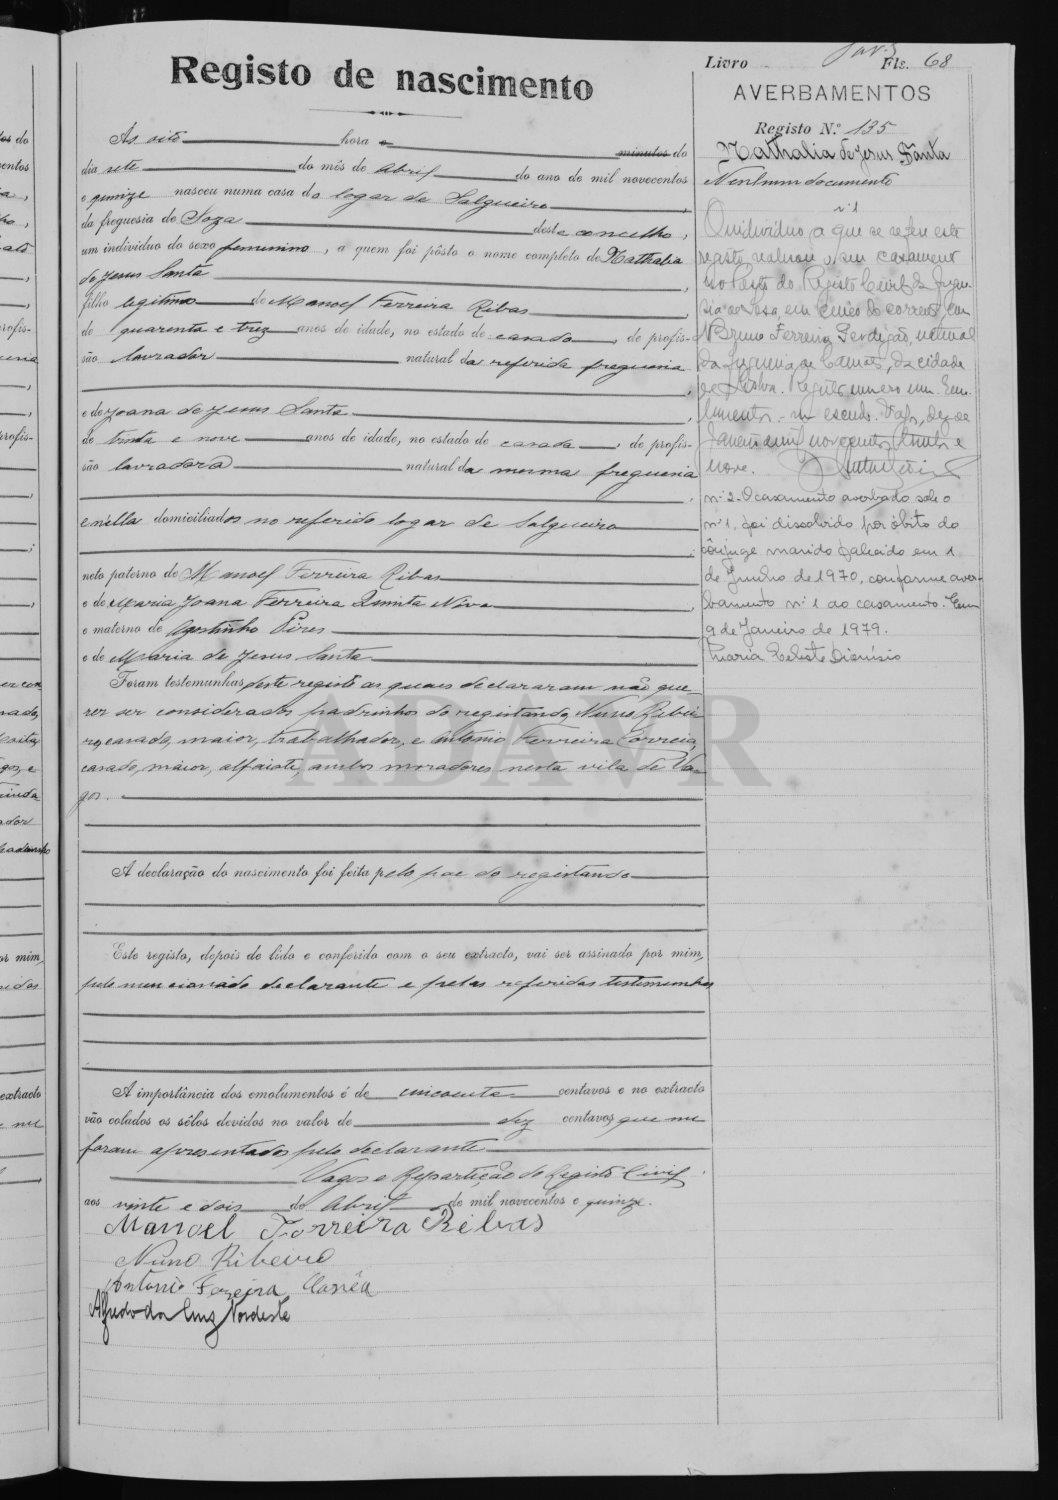 Livro Fls. 68
Registo de nascimento
AVERBAMENTOS
Registo N.º 135
Nathalia de Jesus Santa
Nenhum documento
Ás oito hora
minutos do
dia sete do mês de Abril do ano de mil novecentos
e quinze nasceu numa casa do logar de Salgueiro,
da freguesia de Soza deste concelho,
um individuo do sexo femenino, a quem foi pôsto o nome completo de Nathalia
de Jesus Santa,
filho legitimo de Manoel Ferreira Ribas,
de quarenta e trez anos de idade, no estado de casado, de profis-
são lavrador natural da referida freguesia
,
e de Joana de Jesus Santa,
de trinta e nove anos de idade, no estado de casada, de profis-
são lavradora natural da mesma freguesia
,
e nella domiciliados no referido logar de Salgueiro
;
neto paterno de Manoel Ferreira Ribas
e de Maria Joana Ferreira Quinta Nova,
e materno de Agostinho Pires
e de Maria de Jesus Santa
Foram testemunhas deste registo as quaes declararam não que-
rer ser considerados padrinhos do registando, Nuno Ribei-
ro, casado, maior, trabalhador, e Antonio Ferreira Correia,
casado, maior, alfaiate, ambos moradores nesta vila de Va-
gos.
A declaração do nascimento foi feita pelo pae do registando
Este registo, depois de lido e conferido com o seu extracto, vai ser assinado por mim,
pelo mencionado declarante e pelas referidas testemunhas
A importância dos emolumentos é de cincoenta centavos e no extracto
vão colados os sêlos devidos no valor de dez centavos que me
foram apresentados pelo declarante
Vagos e Repartição do Registo Civil,
aos vinte e dois de Abril de mil novecentos e quinze.
Manoel Ferreira Ribas
Nuno Ribeiro
Antonio Ferreira Corrêa
Alfredo da Luz Nordeste
nº 1
O individuo a que se refere este
registo realisou o seu casamento
no Posto do Registo Civil da Fregue-
sia de Sosa, em cinco do corrente, com
Bruno Ferreira Perdigão, natural
da freguesia de Camões, da cidade
de Lisboa. Registo numero um. Emo-
lumentos um escudo. Vagos, dez de
Janeiro mil novecentos trinta e
nove.
nº 2 - O casamento averbado sob o
nº 1, foi dissolvido por óbito do
cônjuge marido falecido em 1
de Junho de 1970, conforme aver-
bamento nº 1 ao casamento. Em
9 de Janeiro de 1979.
Maria Celeste Dionísio
ADAVR